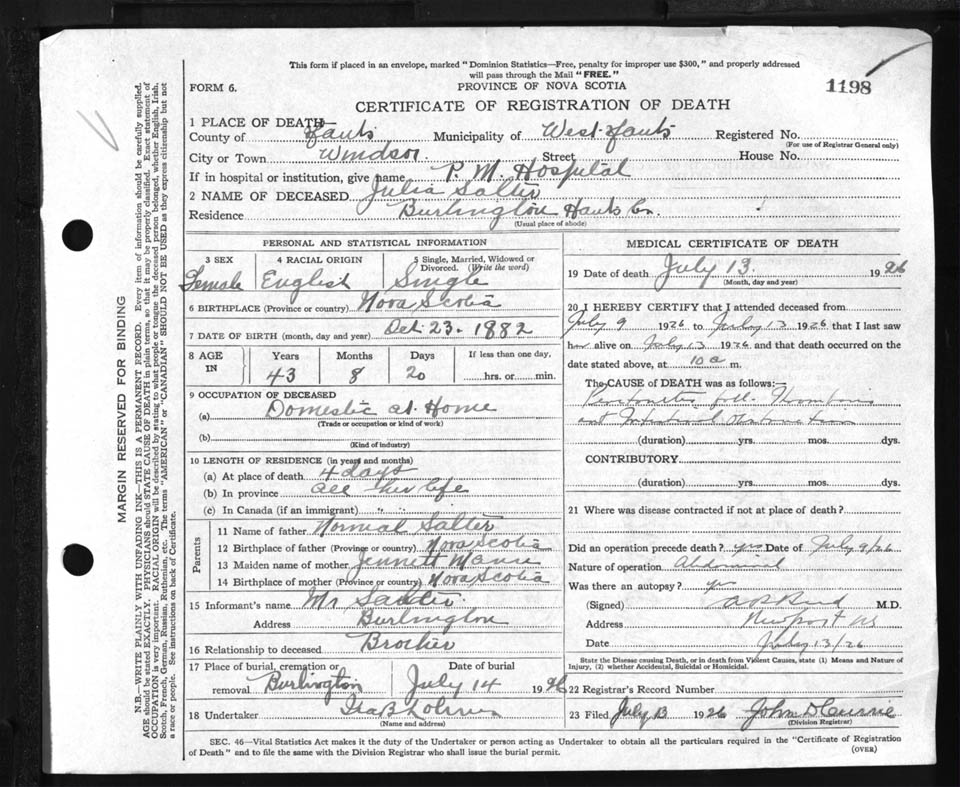 This form if placed in an envelope, marked “Dominion Statistics—Free, penalty for improper use $300,” and properly addressed
will pass through the Mail “FREE.”
FORM 6.
PROVINCE OF NOVA SCOTIA
1198
CERTIFICATE OF REGISTRATION OF DEATH
1 PLACE OF DEATH
County of Hants Municipality of West Hants Registered No.
(For use of Registrar General only)
City or Town Windsor Street House No.
If in hospital or institution, give name P. M. Hospital
2 NAME OF DECEASED Julia Salter
Residence Burlington Hants Co.
(Usual place of abode)
PERSONAL AND STATISTICAL INFORMATION
3 SEX 4 RACIAL ORIGIN 5 Single, Married, Widowed or
Divorced. (Write the word)
Female English Single
6 BIRTHPLACE (Province or country) Nova Scotia
7 DATE OF BIRTH (month, day and year) Oct. 23. 1882
8 AGE Years Months Days If less than one day,
IN 43 8 20 hrs. or min.
9 OCCUPATION OF DECEASED
(a) Domestic at Home
(Trade or occupation or kind of work)
(b)
(Kind of industry)
10 LENGTH OF RESIDENCE (in years and months)
(a) At place of death 4 days
(b) In province all her life
(c) In Canada (if an immigrant)
Parents
11 Name of father Normal Salter
12 Birthplace of father (Province or country) Nova Scotia
13 Maiden name of mother Jennett
14 Birthplace of mother (Province or country) Nova Scotia
15 Informant's name Mr Salter
Address Burlington
16 Relationship to deceased Brother
17 Place of burial, cremation or Date of burial
removal Burlington July 14 1926
18 Undertaker
(Name and address)
MEDICAL CERTIFICATE OF DEATH
19 Date of death July 13. 1926
(Month, day and year)
20 I HEREBY CERTIFY that I attended deceased from
July 9 1926 to July 13 1926 that I last saw
her alive on July 13 1926 and that death occurred on the
date stated above, at 10 a m.
The CAUSE OF DEATH was as follows:—
Peritonitis foll. Thrombosis
and Intestinal Obstruction
(duration) yrs. mos. dys.
CONTRIBUTORY
(duration) yrs. mos. dys.
21 Where was disease contracted if not at place of death?
Did an operation precede death? yes Date of July 9/26
Nature of operation Abdominal
Was there an autopsy? yes
(Signed) M.D.
Address Newport NS
Date July 13/26
State the Disease causing Death, or in death from Violent Causes, state (1) Means and Nature of
Injury, (2) whether Accidental, Suicidal or Homicidal.
22 Registrar's Record Number
23 Filed July 13 1926 John
(Division Registrar)
SEC. 46—Vital Statistics Act makes it the duty of the Undertaker or person acting as Undertaker to obtain all the particulars required in the “Certificate of Registration
of Death” and to file the same with the Division Registrar who shall issue the burial permit.
(OVER)
MARGIN RESERVED FOR BINDING
N.B.—WRITE PLAINLY WITH UNFADING INK—THIS IS A PERMANENT RECORD. Every item of information should be carefully supplied.
AGE should be stated EXACTLY. PHYSICIANS should STATE CAUSE OF DEATH in plain terms, so that it may be properly classified. Exact statement of
OCCUPATION is very important. RACIAL ORIGIN will be described by stating to what people or tongue the deceased person belonged, whether English, Irish,
Scotch, French, German, Russian, Ruthenian, etc. The terms “AMERICAN” or “CANADIAN” SHOULD NOT BE USED as they express citizenship but not
a race or people. See instructions on back of Certificate.